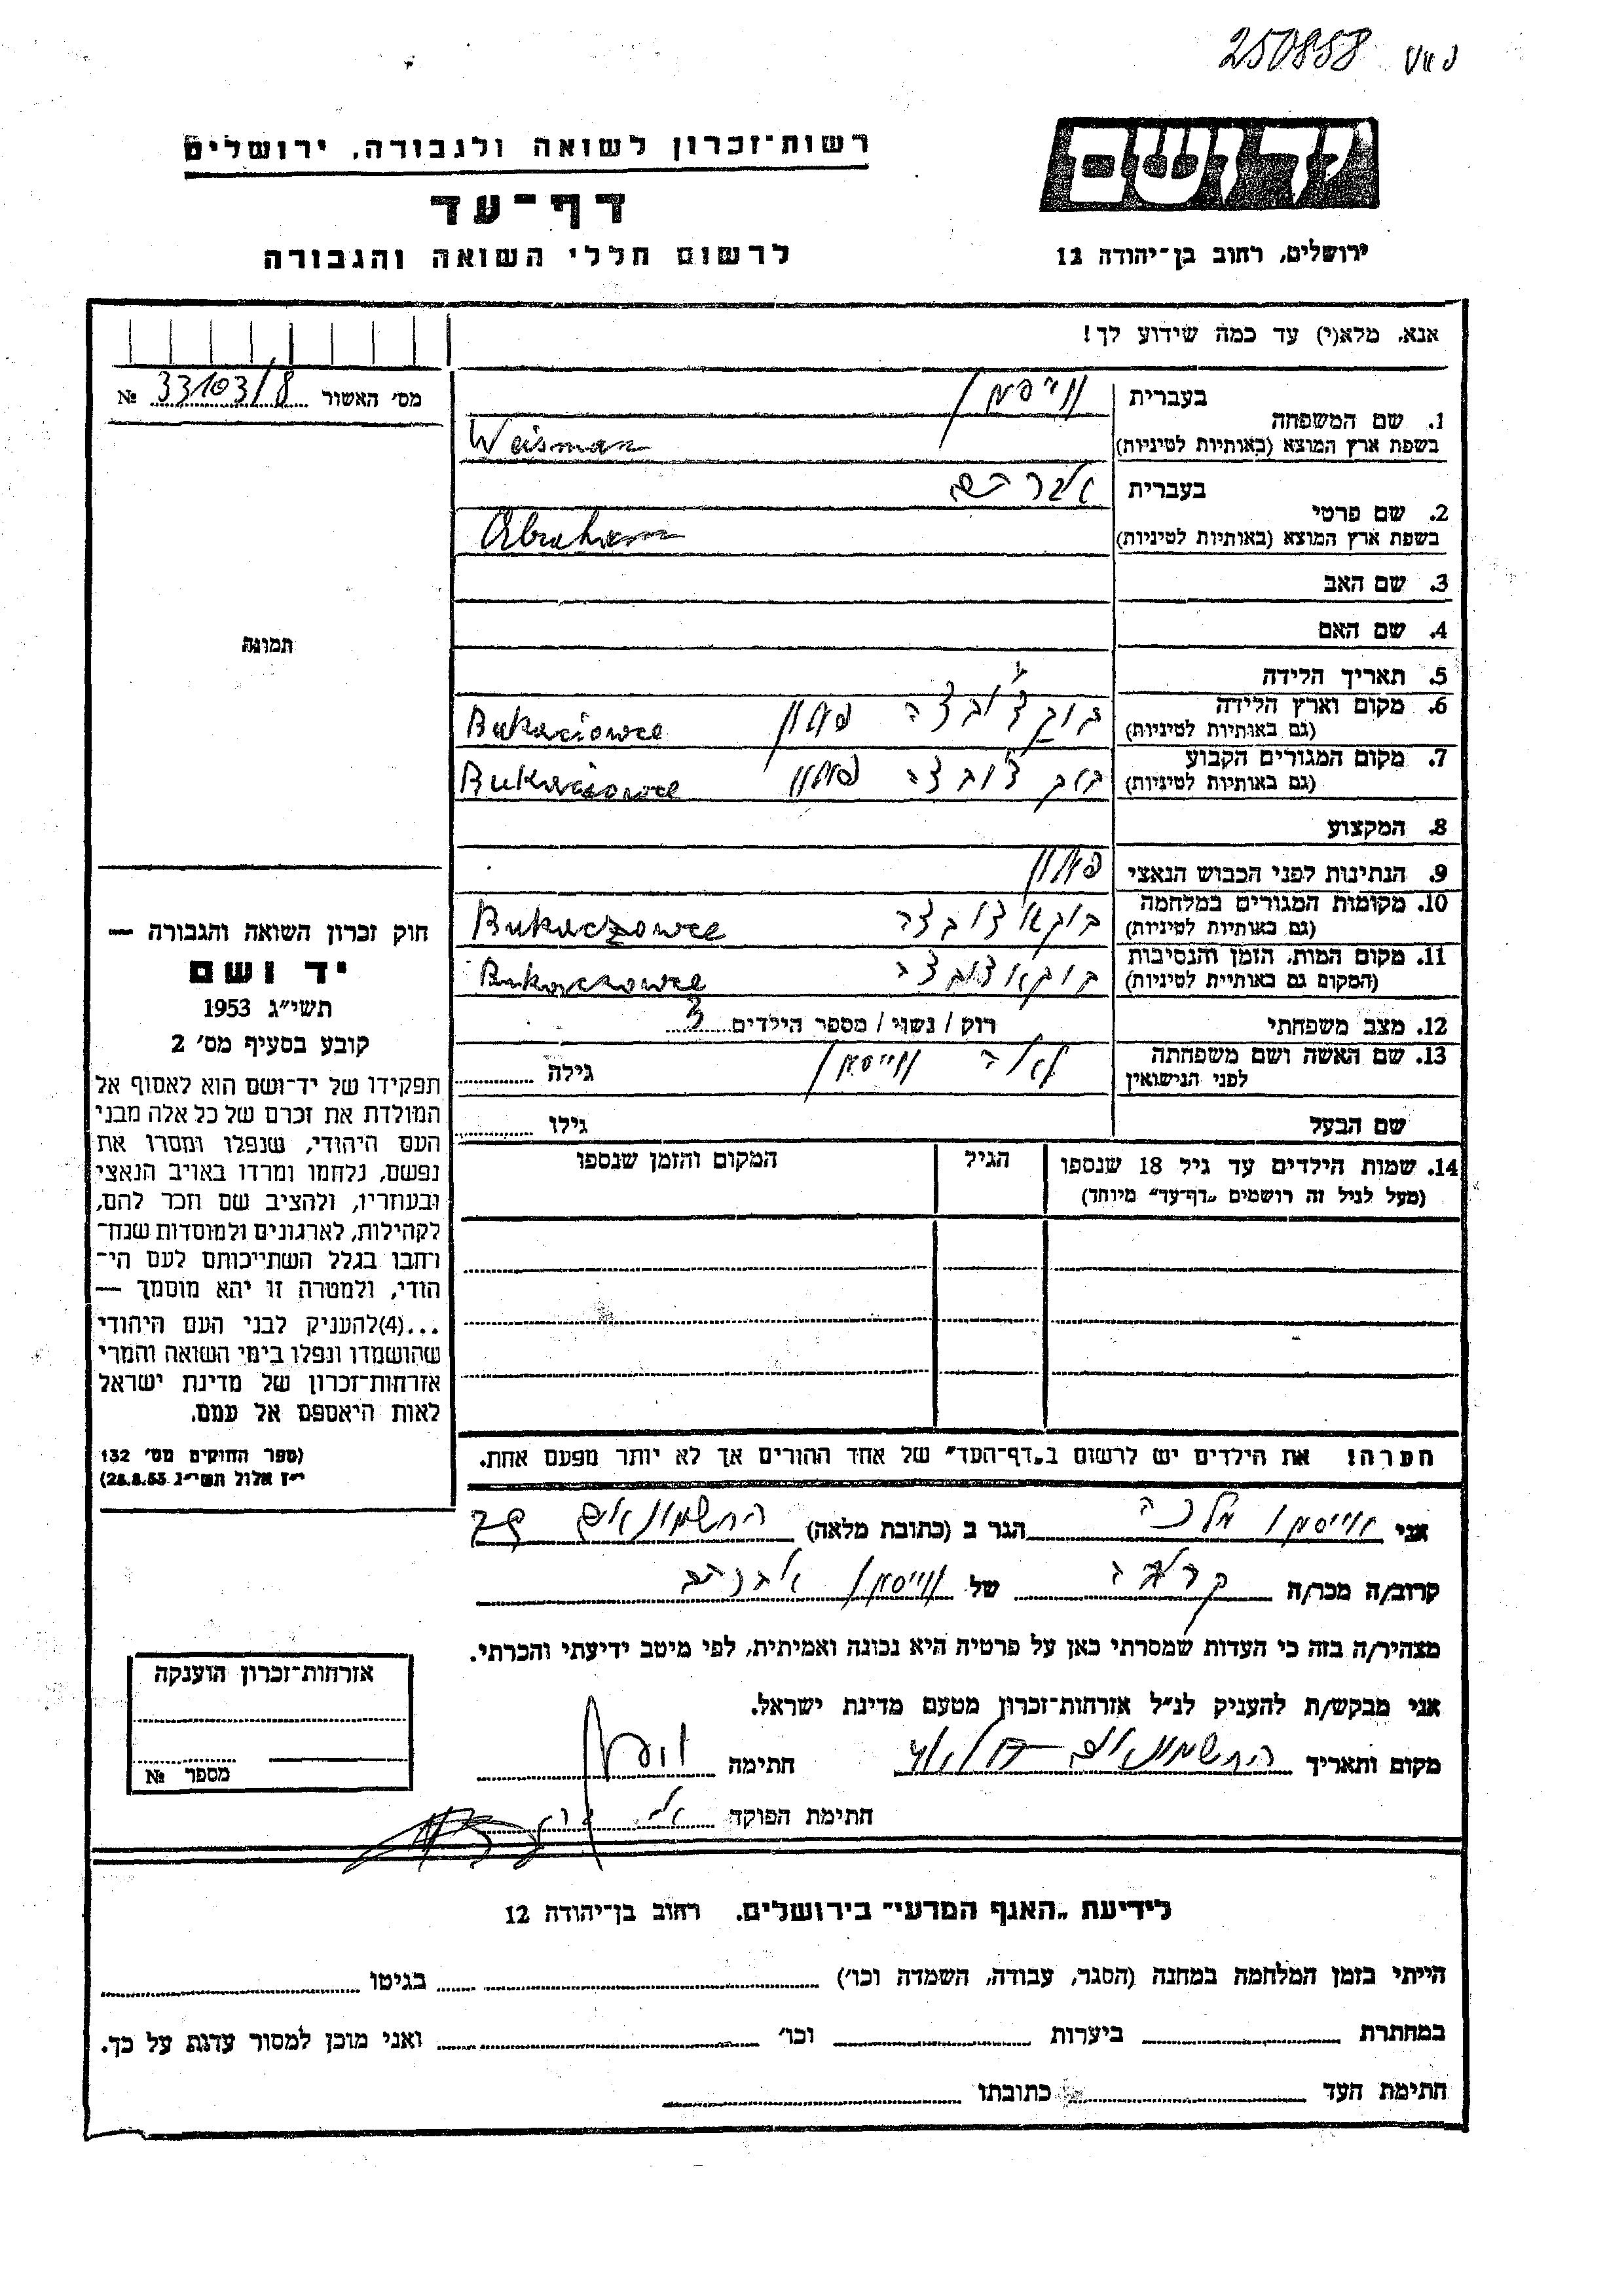 250858
יד ושם
רשות־זכרון לשואה ולגבורה, ירושלים
דף־עד
לרשום חללי השואה והגבורה
ירושלים, רחוב בן־יהודה 12
אנא, מלא(י) עד כמה שידוע לך!
מס׳ האשור 33103/8 №
תמונה
1. שם המשפחה
בעברית ווייסמן
בשפת ארץ המוצא (באותיות לטיניות) Weisman
2. שם פרטי
בעברית אברהם
בשפת ארץ המוצא (באותיות לטיניות) Abraham
3. שם האב
4. שם האם
5. תאריך הלידה
6. מקום וארץ הלידה
(גם באותיות לטיניות) בוקצ'ובצה פולין Bukaciowce
7. מקום המגורים הקבוע
(גם באותיות לטיניות) בוקצ'ובצה פולין Bukaciowce
8. המקצוע
9. הנתינות לפני הכבוש הנאצי פולין
10. מקומות המגורים במלחמה
(גם באותיות לטיניות) בוקאצובצה Bukaczowce
11. מקום המות, הזמן והנסיבות
(המקום גם באותיית לטיניות) בוקאצובצה Bukaczowce
12. מצב משפחתי רוק / נשוי / מספר הילדים 3
13. שם האשה ושם משפחתה
לפני הנישואין לאה ווייסמן גילה
שם הבעל גילו
14. שמות הילדים עד גיל 18 שנספו
(מעל לגיל זה רושמים „דף־עד” מיוחד)
הגיל
המקום והזמן שנספו
הערה! את הילדים יש לרשום ב„דף־העד” של אחד ההורים אך לא יותר מפעם אחת.
חוק זכרון השואה והגבורה —
יד ושם
תשי״ג 1953
קובע בסעיף מס׳ 2
תפקידו של יד־ושם הוא לאסוף אל
המולדת את זכרם של כל אלה מבני
העם היהודי, שנפלו ומסרו את
נפשם, נלחמו ומרדו באויב הנאצי
ובעוזריו, ולהציב שם וזכר להם,
לקהילות, לארגונים ולמוסדות שנח־
רחבו בגלל השתייכותם לעם הי־
הודי, ולמטרה זו יהא מוסמך —
...(4)להעניק לבני העם היהודי
שהושמדו ונפלו בימי השואה והמרי
אזרחות־זכרון של מדינת ישראל
לאות היאספם אל עמם.
(ספר החוקים מס׳ 132
י״ז אלול תשי״ג 28.8.53)
אני ווייסמן מלכה הגר ב (כתובת מלאה) החשמונאים
קרוב/ה מכר/ה קרובה של ווייסמן אברהם
מצהיר/ה בזה כי העדות שמסרתי כאן על פרטיה היא נכונה ואמיתית, לפי מיטב ידיעתי והכרתי.
אני מבקש/ת להעניק לנ״ל אזרחות־זכרון מטעם מדינת ישראל.
מקום ותאריך החשמונאים חתימה
חתימת הפוקד
אזרחות־זכרון הוענקה
מספר №
לידיעת „האגף המדעי” בירושלים, רחוב בן־יהודה 12
הייתי בזמן המלחמה במחנה (הסגר, עבודה, השמדה וכו׳) בגיטו
במחתרת ביערות וכו׳ ואני מוכן למסור עדות על כך.
חתימת העד כתובתו